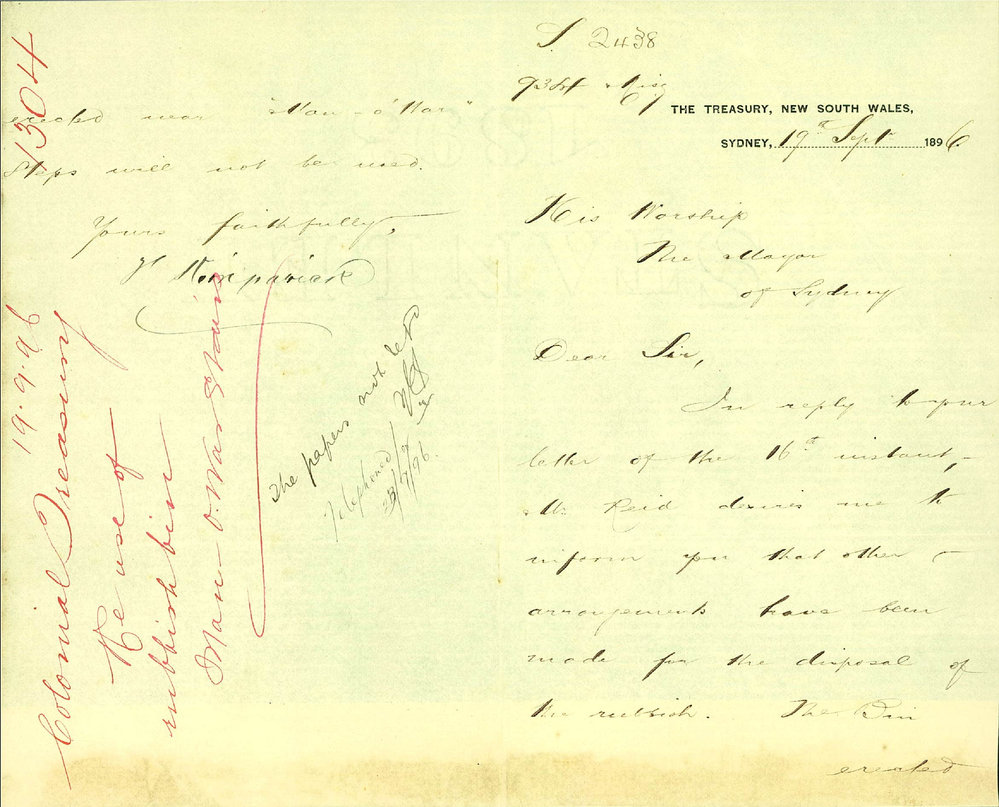 S. 2438
Misc
THE TREASURY, NEW SOUTH WALES,
SYDNEY, 19th Sept 1896
His Worship
The Mayor
of Sydney
Dear Sir,
In reply to your
letter of the 16th instant,
Mr. Reid desires me to
inform you that other
arrangements have been
made for the disposal of
the rubbish. The Bin
erected
erected near "Man-o'War"
Steps will not be used.
Yours faithfully,
1304
19.9.96
Colonial Treasury
Re use of
rubbish bin
Man-O.War Stairs
The papers not
Telephoned
/9/96.